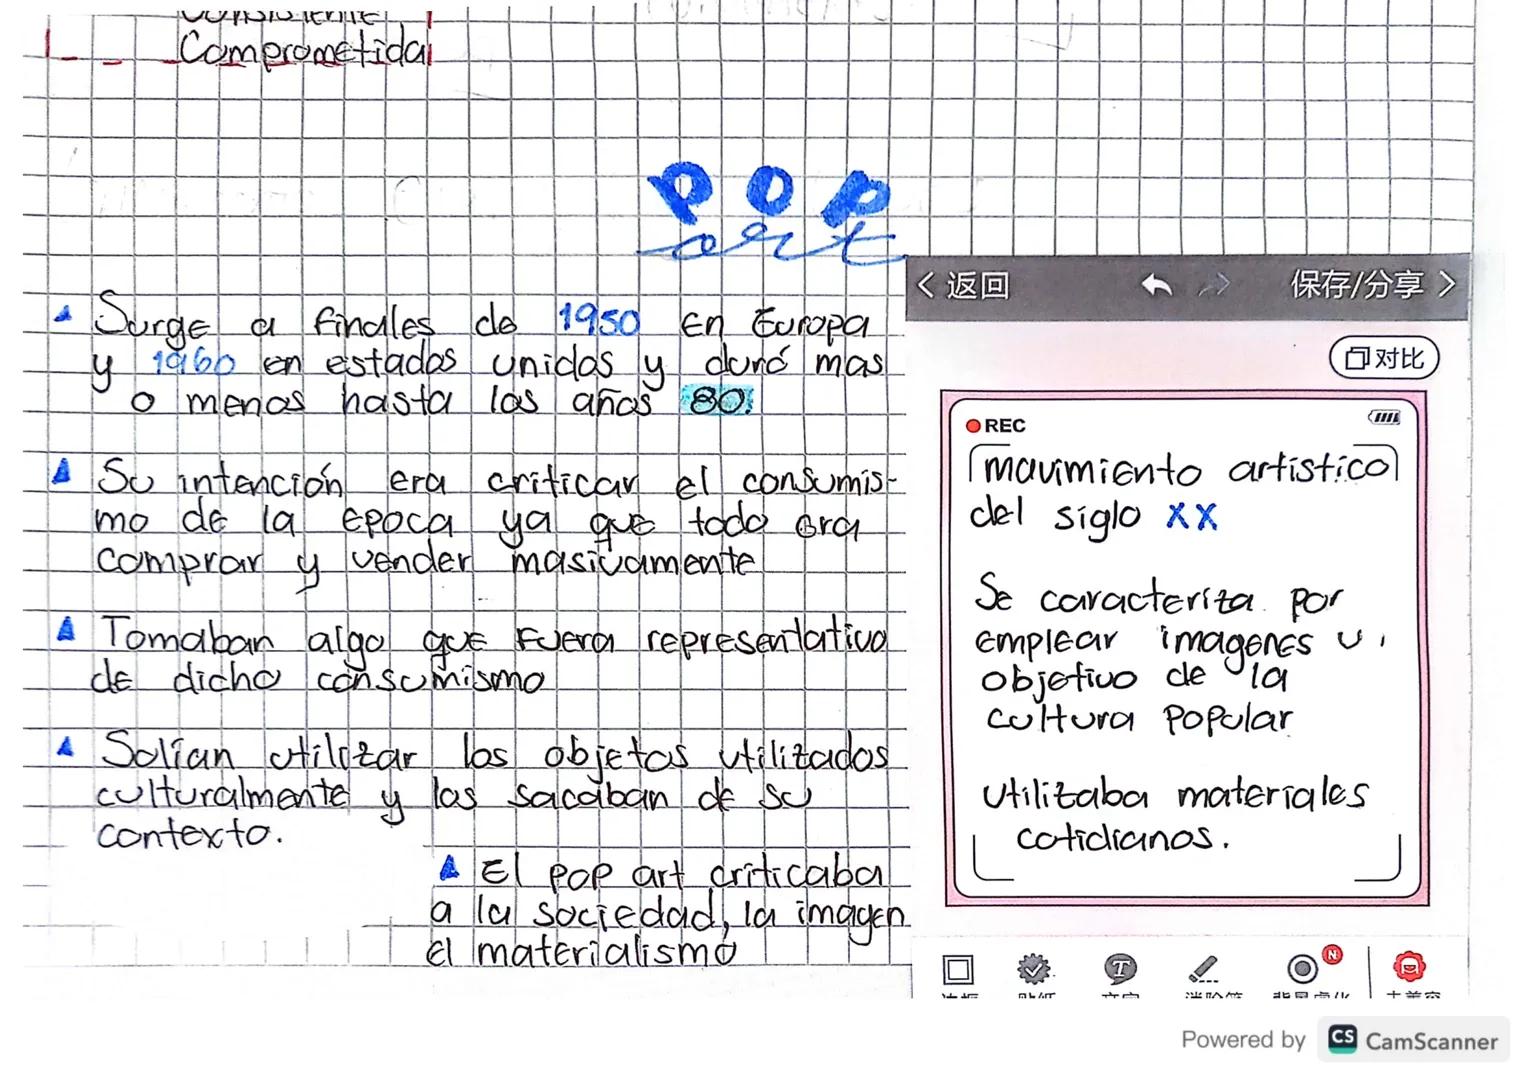 Comprometida
POP
art
Surge a finales de 1950 en Europa
y 1960 en estados unidos y duró mas
o menos hasta los años 80.
Su intención era criticar el consumis-
mo de la epoca ya que todo era
comprar y vender masivamente
Tomaban algo que fuera representativo
de dicho consumismo
Solían utilizar los objetos utilizados
culturalmente y los sacaban de su
contexto.
El pop art criticaba
a la sociedad, la imagen
el materialismo
返回
保存/分享
对比
REC
movimiento artistico
del siglo XX
Se caracteriza por
emplear imagenes u
objetivo de la
cultura popular
utilizaba materiales
cotidianos.
N
Powered by CS CamScanner